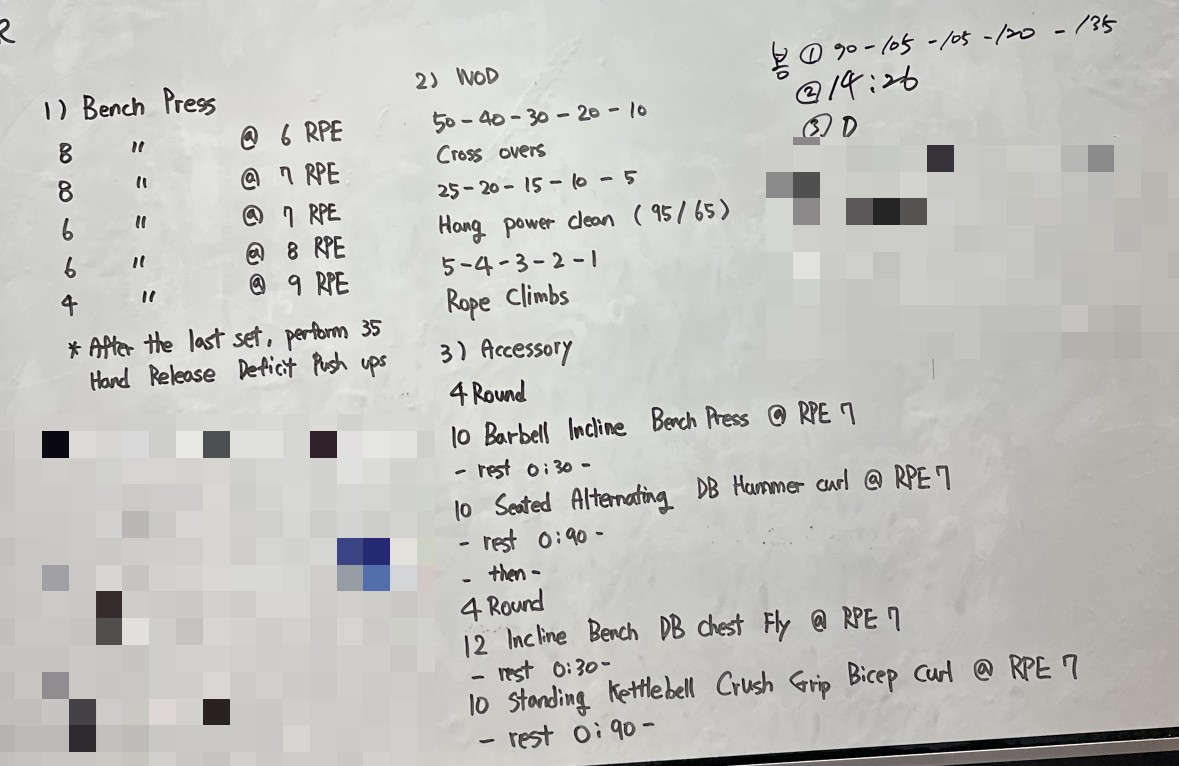 R
1) Bench Press
8 " @ 6 RPE
8 " @ 7 RPE
6 " @ 7 RPE
6 " @ 8 RPE
4 " @ 9 RPE
* After the last set, perform 35
Hand Release Deficit Push ups
2) WOD
50-40-30-20-10
Cross overs
25-20-15-10-5
Hang power clean (95/65)
5-4-3-2-1
Rope Climbs
3) Accessory
4 Round
10 Barbell Incline Bench Press @ RPE 7
- rest 0:30 -
10 Seated Alternating DB Hammer curl @ RPE 7
- rest 0:90 -
- then -
4 Round
12 Incline Bench DB chest Fly @ RPE 7
- rest 0:30-
10 Standing Kettlebell Crush Grip Bicep Curl @ RPE 7
- rest 0:90 -
봉 ① 90-105-105-120-135
② 14:26
③ D